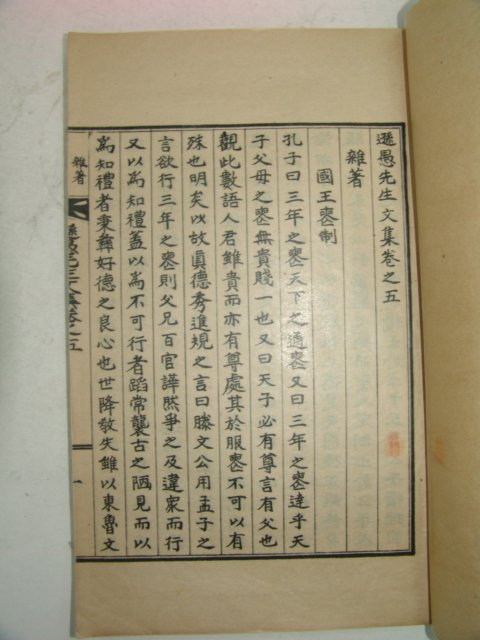 遜愚先生文集卷之五
雜著
國王喪制
孔子曰三年之喪天下之通喪又曰三年之喪達乎天
子父母之喪無貴賤一也又曰天子必有尊言有父也
觀此數語人君雖貴而亦有尊處其於服喪不可以有
殊也明矣以故眞德秀進規之言曰滕文公用孟子之
言欲行三年之喪則父兄百官譁然爭之及違衆而行
又以爲知禮蓋以爲不可行者蹈常襲古之陋見而以
爲知禮者秉彝好德之良心也世降敎失雖以東魯文
雜著
遜愚先生文集卷之五
一